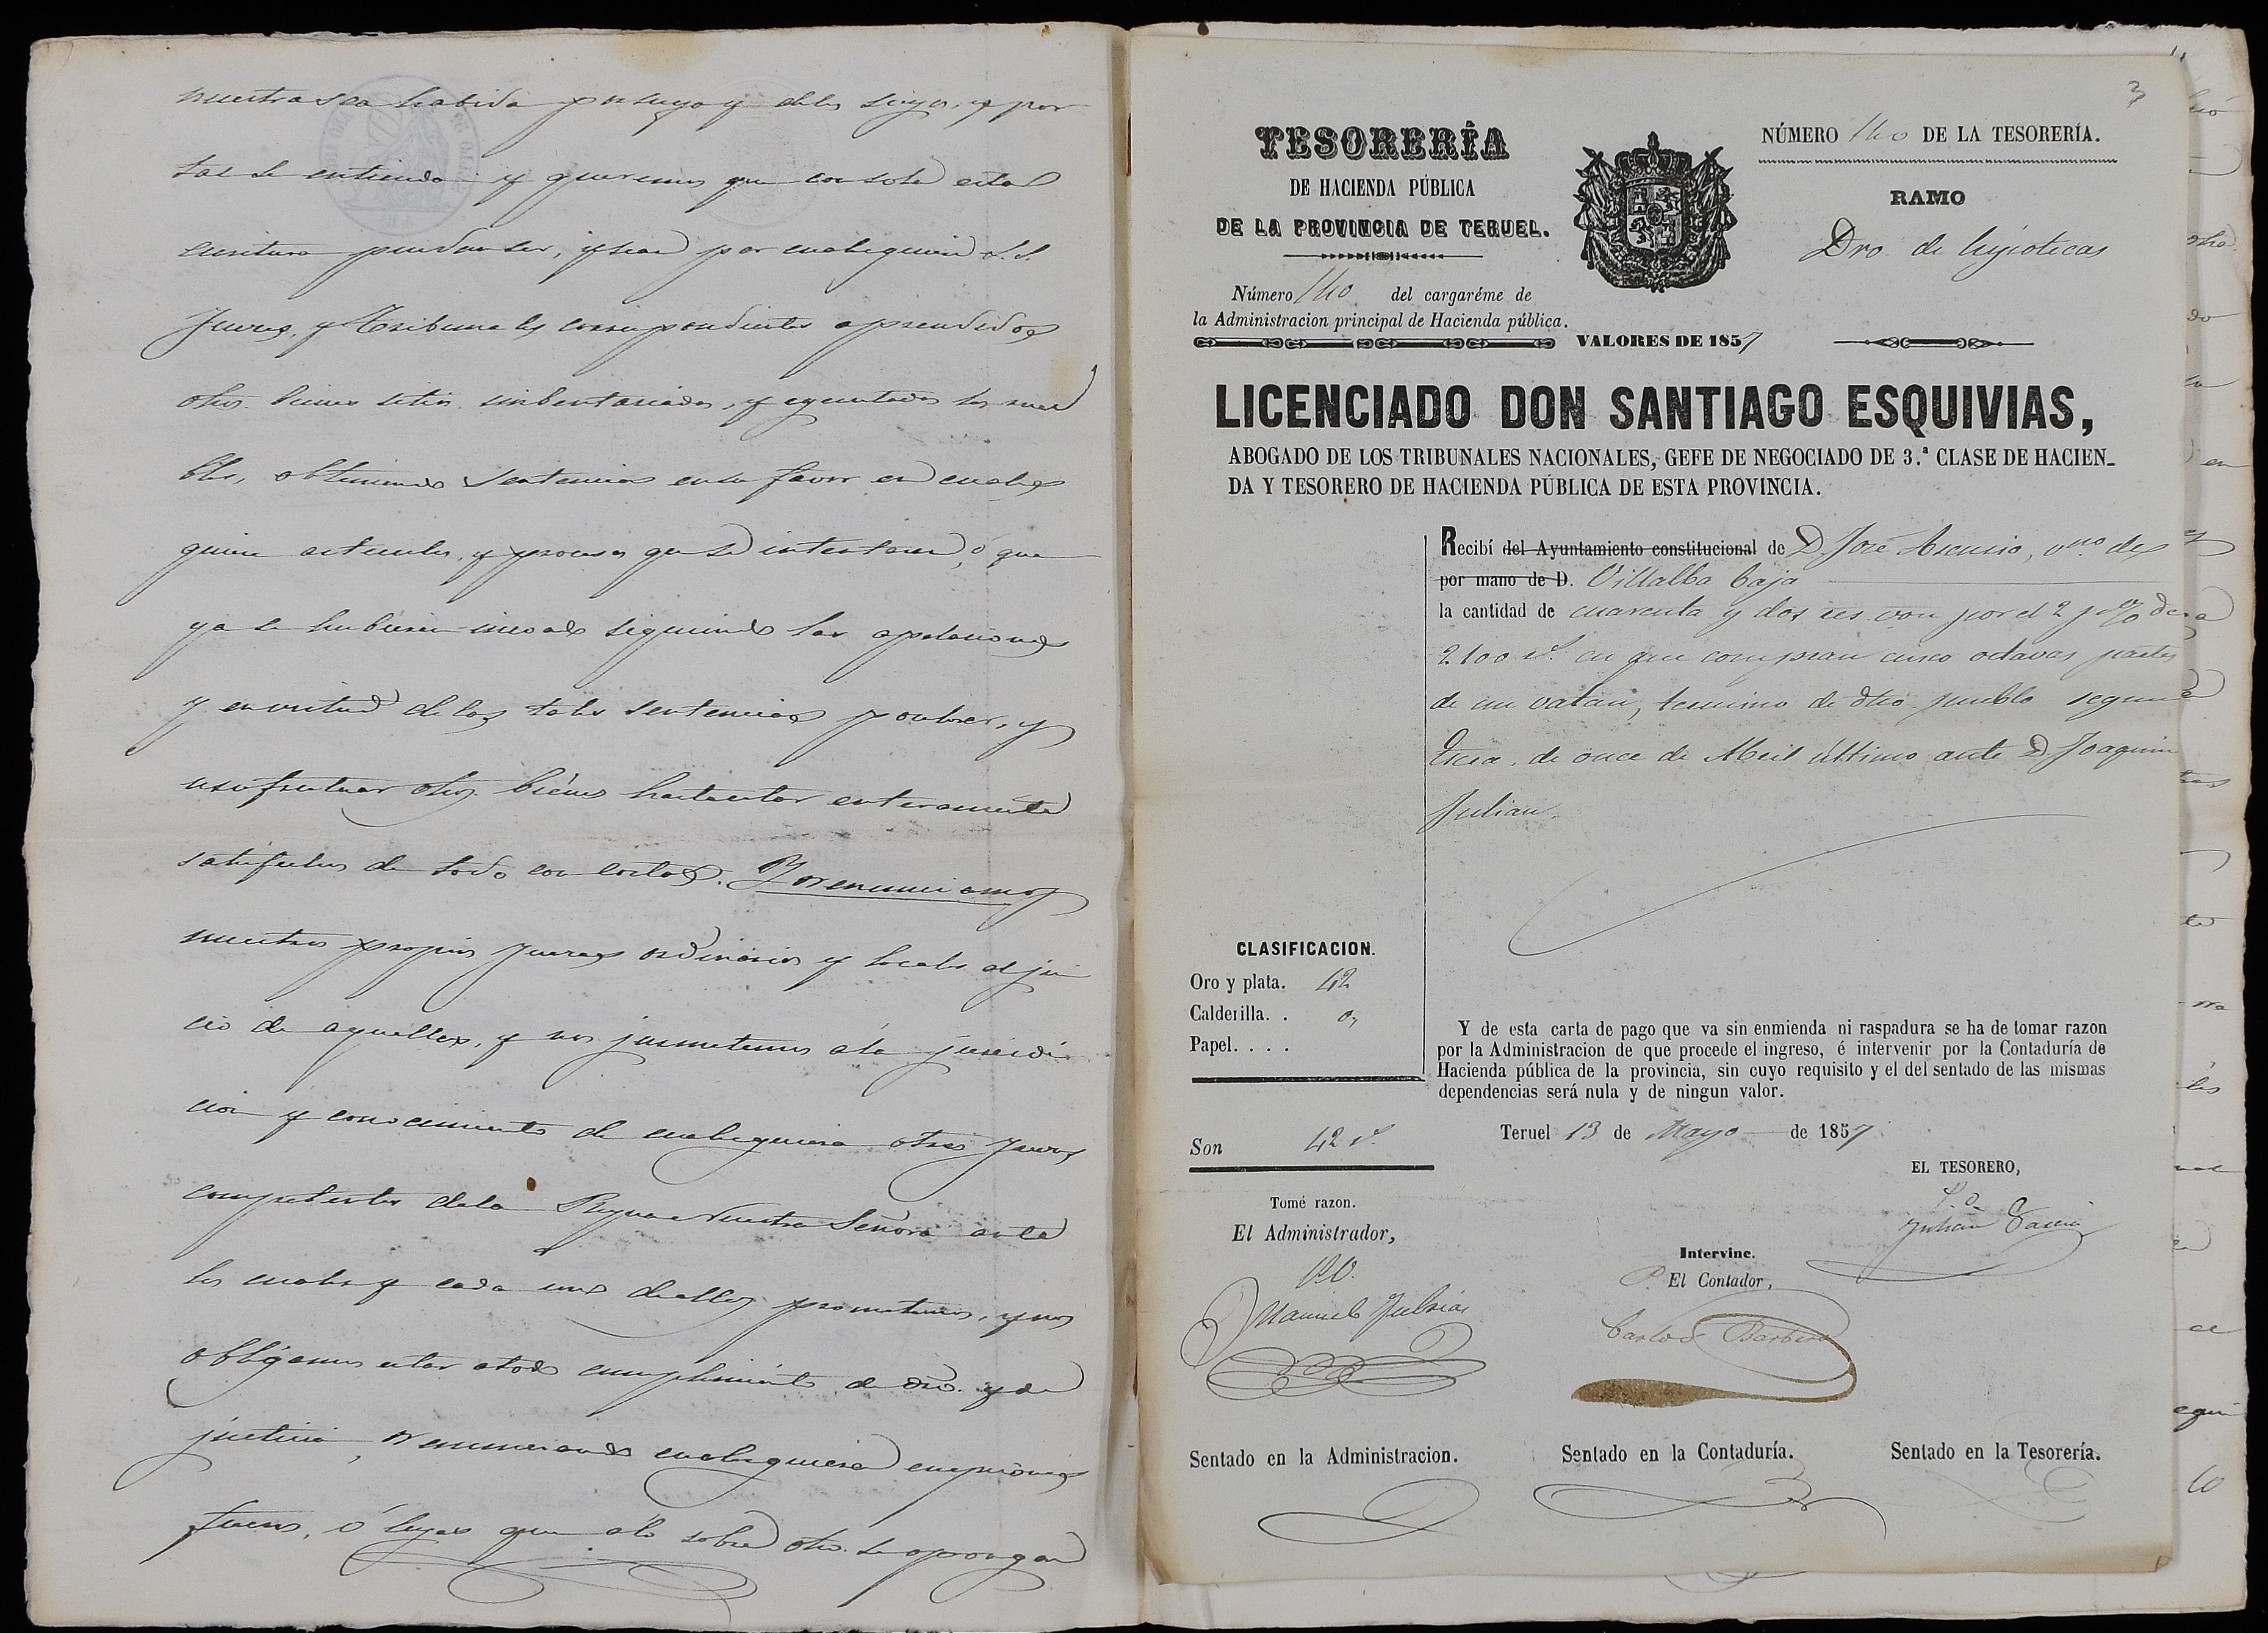 nuestra sea habida por suya y de los suyos, y por
tas se entienda y queremos que con sola esta
escritura puedan ser, y sean por cualequiera S.S.
Jueces, y Tribunales correspondientes aprendidos
dhos. bienes sitios, imbentariados, y egecutados los mue
bles, obteniendo sentencias en su favor en cuales
quiera articulos, y procesos que se intentaren, ó que
ya se hubieren incoado siguiendo las apelaciones
y en virtud de las tales sentencias poseher, y
usufrutuar dhos. biénes hasta estar enteramente
satisfechos de todo con costas. Y renunciamos
nuestros propios Jueces ordinarios y locales al jui
cio de aquellos, y nos jusmetemos á la jurisdic
cion y conocimiento de cualequiera otros Jueces
competentes de la Reyna Nuestra Señora ante
los cuales y cada uno de ellos prometemos, y nos
obligamos estar a todo cumplimiento de dro. y de
justicia, renunciando cualequiera excepciones
fueros, ó leyes que á lo sobre dho. se opongan
3
TESORERÍA
DE HACIENDA PÚBLICA
DE LA PROVINCIA DE TERUEL.
Número 140 del cargaréme de
la Administracion principal de Hacienda pública.
NÚMERO 140 DE LA TESORERÍA.
RAMO
Dro. de hipotecas
VALORES DE 1857
LICENCIADO DON SANTIAGO ESQUIVIAS,
ABOGADO DE LOS TRIBUNALES NACIONALES, GEFE DE NEGOCIADO DE 3.ª CLASE DE HACIEN-
DA Y TESORERO DE HACIENDA PÚBLICA DE ESTA PROVINCIA.
Recibí del Ayuntamiento constitucional de D. José Asensio, vno. de
por mano de D. Villalba baja
la cantidad de cuarenta y dos rs. von por el 2 p% de
2100 rs. en que compran cinco octavas partes
de un batan, termino de dho. pueblo segun
Escra. de once de Abril último ante D. Joaquin
Julian.
CLASIFICACION.
Oro y plata. 42
Calderilla. . 0,
Papel. . . .
Son 42 rs.
Y de esta carta de pago que va sin enmienda ni raspadura se ha de tomar razon
por la Administracion de que procede el ingreso, é intervenir por la Contaduría de
Hacienda pública de la provincia, sin cuyo requisito y el del sentado de las mismas
dependencias será nula y de ningun valor.
Teruel 13 de Mayo de 1857
EL TESORERO,
P. O.
Julian
Tomé razon.
El Administrador,
P.O.
Manuel Julian
Intervine.
P. El Contador,
Carlos Barbero
Sentado en la Administracion.
Sentado en la Contaduría.
Sentado en la Tesorería.